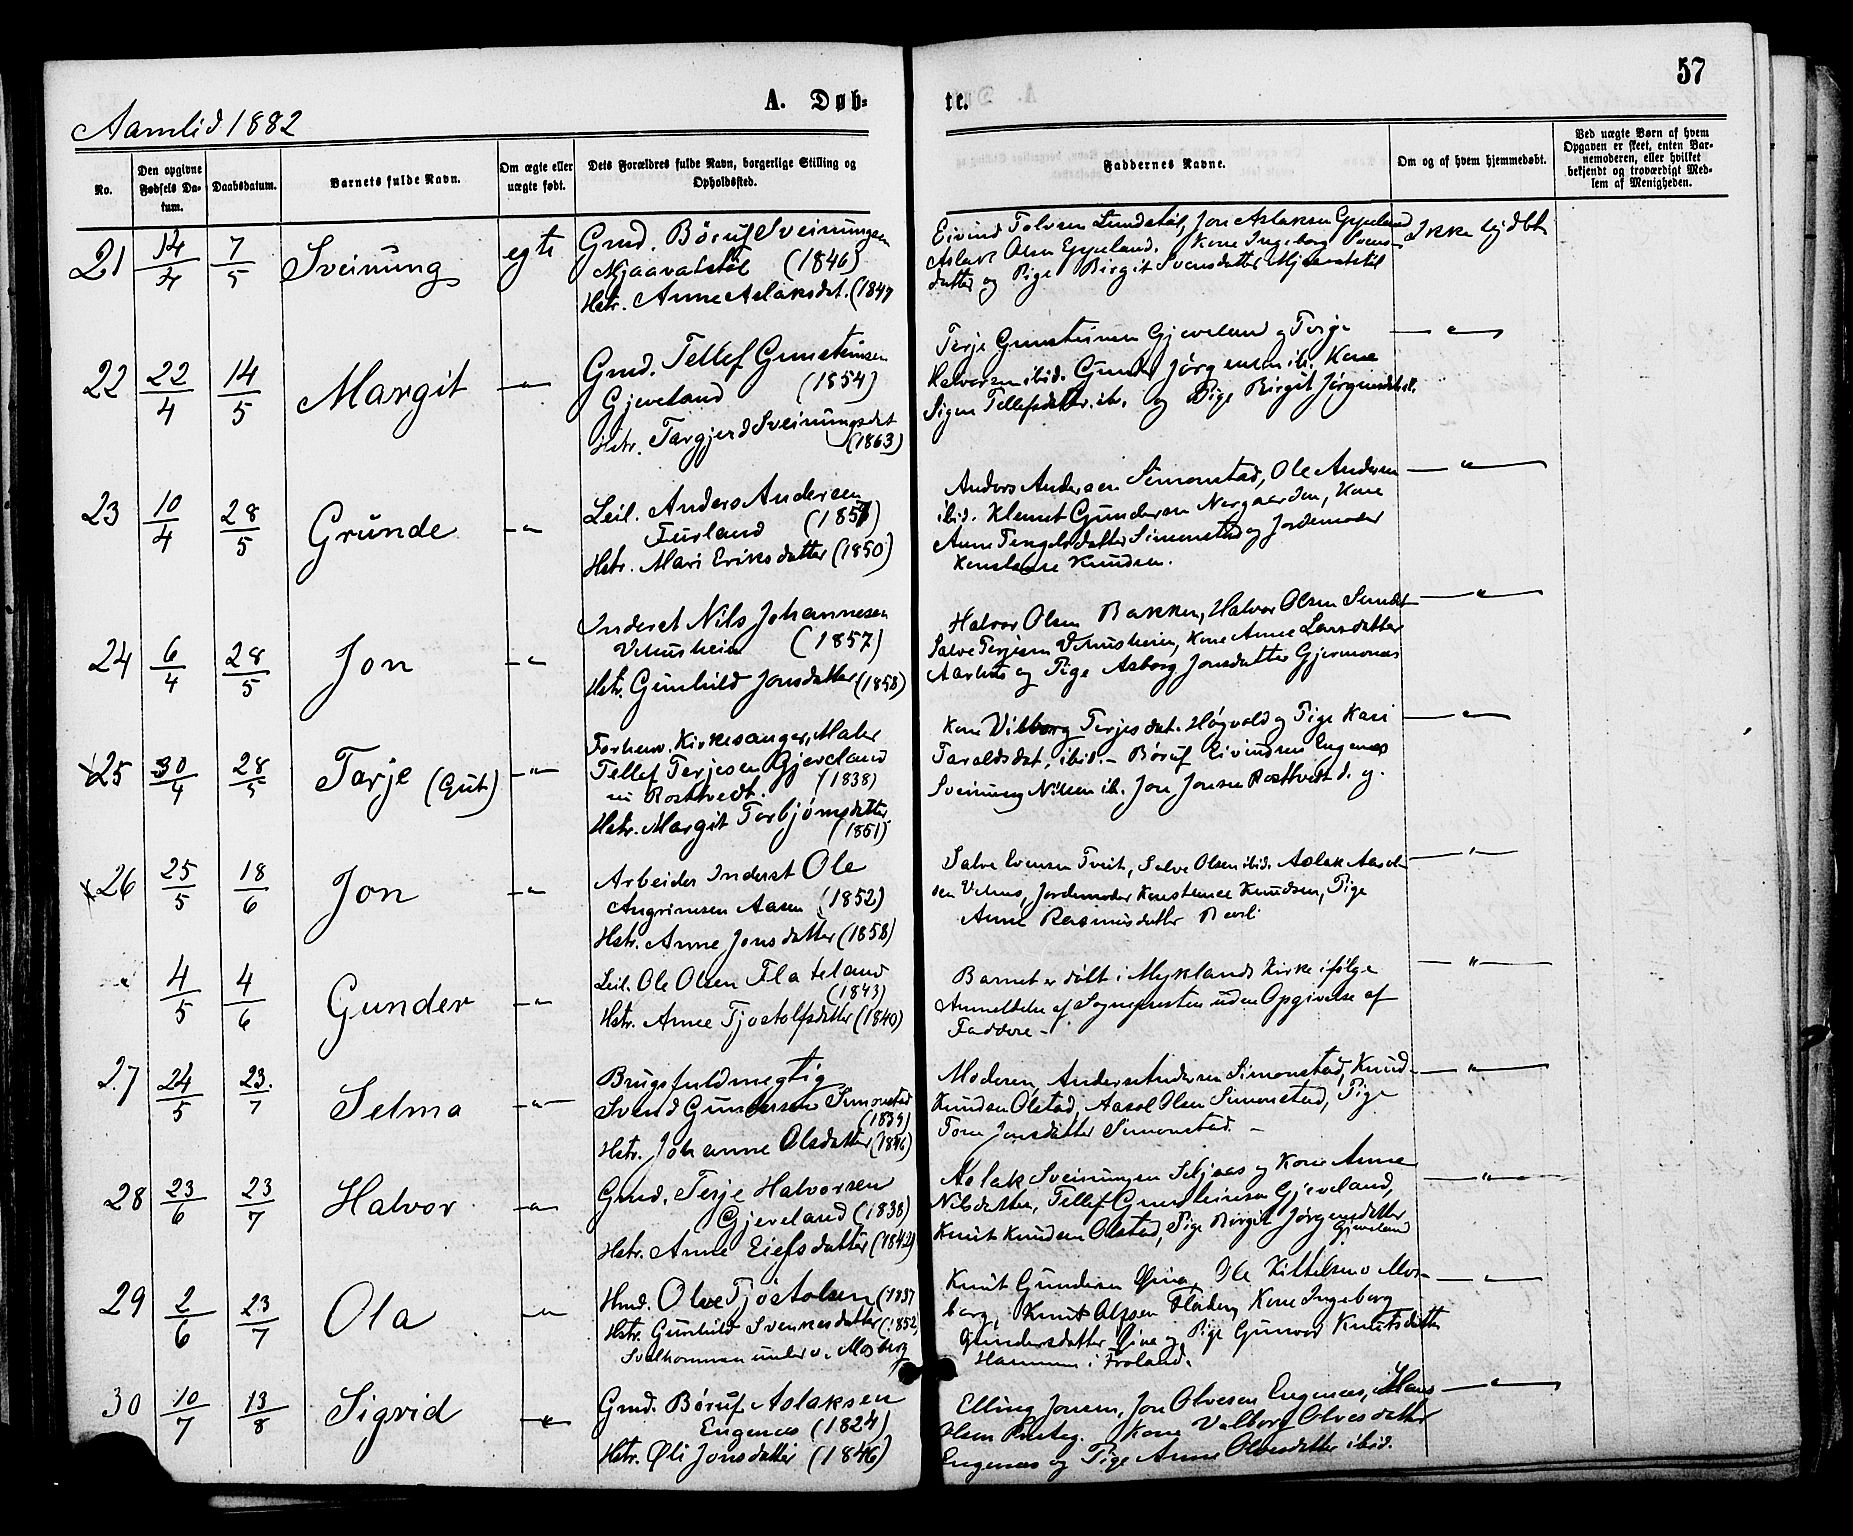 57
Aamlid 1882
A. Døb-
te.
No.
Den opgivne Fødsels Da-
tum.
Daabsdatum.
Barnets fulde Navn.
Om ægte eller
uægte født.
Dets Forældres fulde Navn, borgerlige Stilling og
Opholdssted.
Faddernes Navne.
Om og af hvem hjemmedøbt.
Ved uægte Børn af hvem
Opgaven er skeet, enten Bar-
nemoderen, eller hvilket
bekjendt og troværdigt Med-
lem af Menigheden.
21 14/4 7/5 Sveinung egte
Gmd. Børuf Sveinungsen
Mjaavatstøl (1846)
Hstr. Anne Aslaksdat. (1847
Eivind Tolvsen Lundstøl, Jon Aslaksen Eppeland
Aslak Olsen Eppeland. Kone Ingeborg Svens-
datter og Pige Birgit Svensdatter Mjaavatstøl
Ikke hjdbt
22 22/4 14/5 Margit —"—
Gmd. Tellef Gunsteinsen
Gjeveland (1854)
Hstr. Targjerd Sveinungsdat
(1863)
Terje Gunsteinsen Gjeveland og Terje
Halvorsen ibid. Gunder Jørgensen ib. Kone
Signe Tellefsdatter ib. og Pige Birgit Jørgensdatt.
—"—
23 10/4 28/5 Grunde —"—
Leil. Anders Andersen
Furland (1857)
Hstr. Mari Eriksdatter (1850)
Anders Andersen Simonstad, Ole Andersen
ibid. Klemet Gundersen Nergaarden, Kone
Anne Tengelsdatter Simonstad og Jordemoder
Konstanse Knudsen.
—"—
24 6/4 28/5 Jon —"—
Inderst Nils Johannesen
Vehusheien (1857)
Hstr. Gunhild Jonsdatter (1858)
Halvor Olsen Bakken, Halvor Olsen
Salve Terjesen Vehusheien, Kone Anne Larsdatter
og Pige Asborg Jonsdatter Gjermones
—"—
25 30/4 28/5 Tarje (Gut) —"—
Forhenv. Kirkesanger, Maler
Tellef Terjesen Gjeveland
nu Rosttvedt. (1838)
Hstr. Margit Torbjørnsdatter
(1851)
Kone Vilborg Terjesdat. Høgvold og Pige Kari
Taraldsdat, ibid. – Børuf Eivindsen Engenes
Sveinung Nilsen ib. Jon Jonsen Rosttvedt d. y.
—"—
26 25/5 18/6 Jon —"—
Arbeider Inderst Ole
Angrimsen Aasen (1852)
Hstr. Anne Jonsdatter (1858)
Salve Evensen Tveit, Salve Olsen ibid. Aslak Aasol-
sen Vehus, Jordemoder Konstance Knudsen, Pige
Anne Rasmusdatter
—"—
4/5 4/6 Gunder —"—
Leil. Ole Olsen Flateland
(1843)
Hstr. Anne Tjostolfsdatter (1840)
Barnet er døbt i Myklands Kirke ifølge
Anmeldelse af Sognepresten uden Opgivelse af
Faddere –
—"—
27 24/5 23/7 Selma —"—
Brugsfuldmegtig
Svend Gundersen Simonstad
(1839)
Hstr. Johanne Olsdatter (1846)
Moderen, Anders Andersen Simonstad, Knud
Knudsen Olstad, Aasol Olsen Simonstad, Pige
Tone Jonsdatter Simonstad. –
—"—
28 23/6 23/7 Halvor —"—
Gmd. Terje Halvorsen
Gjeveland (1838)
Hstr. Anne Eiefsdatter (1842)
Aslak Sveinungsen Seljaas og Kone Anne
Nilsdatter, Tellef Gunsteinsen Gjeveland,
Knut Knudsen Olstad, Pige Birgit Jørgensdatter
Gjeveland
—"—
29 2/6 23/7 Ola —"—
Hmd. Olve Tjøstolsen (1857
Hstr. Gunhild Svenkesdatter (1852,
under Mosberg
Knut Gundersen Ole Kittelsen Mos-
berg, Knut Kone Ingeborg
Gundersdatter og Pige Gunvor Knutsdatter
Hammen i Froland.
—"—
30 10/7 13/8 Sigrid —"—
Gmd. Børuf Aslaksen
Engenes (1824)
Hstr. Øli Jonsdatter (1846)
Elling Jonsen, Jon Olvesen Engenes, Hans
Olsen Kone Valborg Olvesdatter
Engenes og Pige Anne Olvesdatter ibid.
—"—